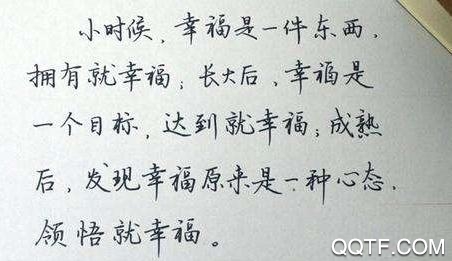 小时候，幸福是一件东西，
拥有就幸福；长大后，幸福是
一个目标，达到就幸福；成熟
后，发现幸福原来是一种心态，
领悟就幸福。
QQTF.COM